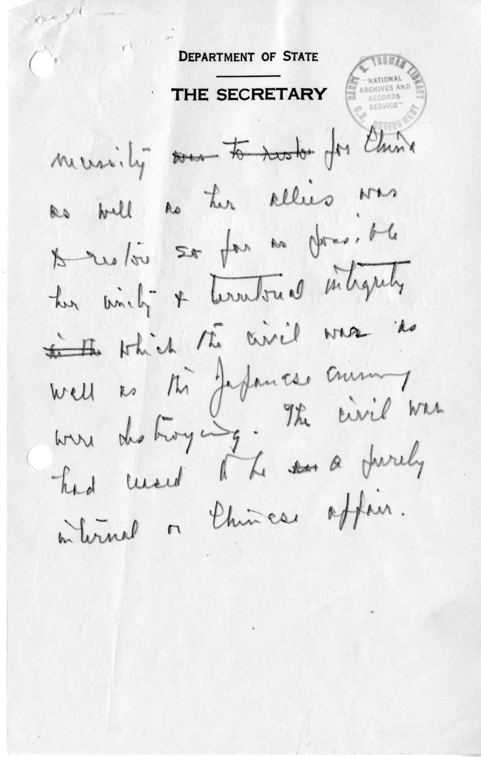 DEPARTMENT OF STATE
THE SECRETARY
HARRY S. TRUMAN LIBRARY
"NATIONAL
ARCHIVES AND
RECORDS
SERVICE"
U.S. GOVERNMENT
necessity was to restore for China
as well as her allies was
to restore so far as possible
her unity & territorial integrity
in the which the civil war as
well as the Japanese enemy
were destroying. The civil war
had ceased to be a purely
internal or Chinese affair.